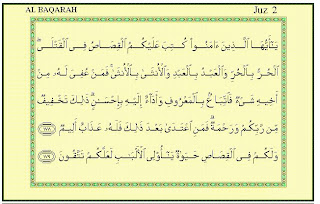 AL BAQARAH Juz 2
يَـٰٓأَيُّهَا ٱلَّذِينَ ءَامَنُوا۟ كُتِبَ عَلَيْكُمُ ٱلْقِصَاصُ فِى ٱلْقَتْلَى ۖ
ٱلْحُرُّ بِٱلْحُرِّ وَٱلْعَبْدُ بِٱلْعَبْدِ وَٱلْأُنثَىٰ بِٱلْأُنثَىٰ ۚ فَمَنْ عُفِىَ لَهُۥ مِنْ
أَخِيهِ شَىْءٌ فَٱتِّبَاعٌۢ بِٱلْمَعْرُوفِ وَأَدَآءٌ إِلَيْهِ بِإِحْسَـٰنٍ ۗ ذَٰلِكَ تَخْفِيفٌ
مِّن رَّبِّكُمْ وَرَحْمَةٌ ۗ فَمَنِ ٱعْتَدَىٰ بَعْدَ ذَٰلِكَ فَلَهُۥ عَذَابٌ أَلِيمٌ ١٧٨
وَلَكُمْ فِى ٱلْقِصَاصِ حَيَوٰةٌ يَـٰٓأُو۟لِى ٱلْأَلْبَـٰبِ لَعَلَّكُمْ تَتَّقُونَ ١٧٩